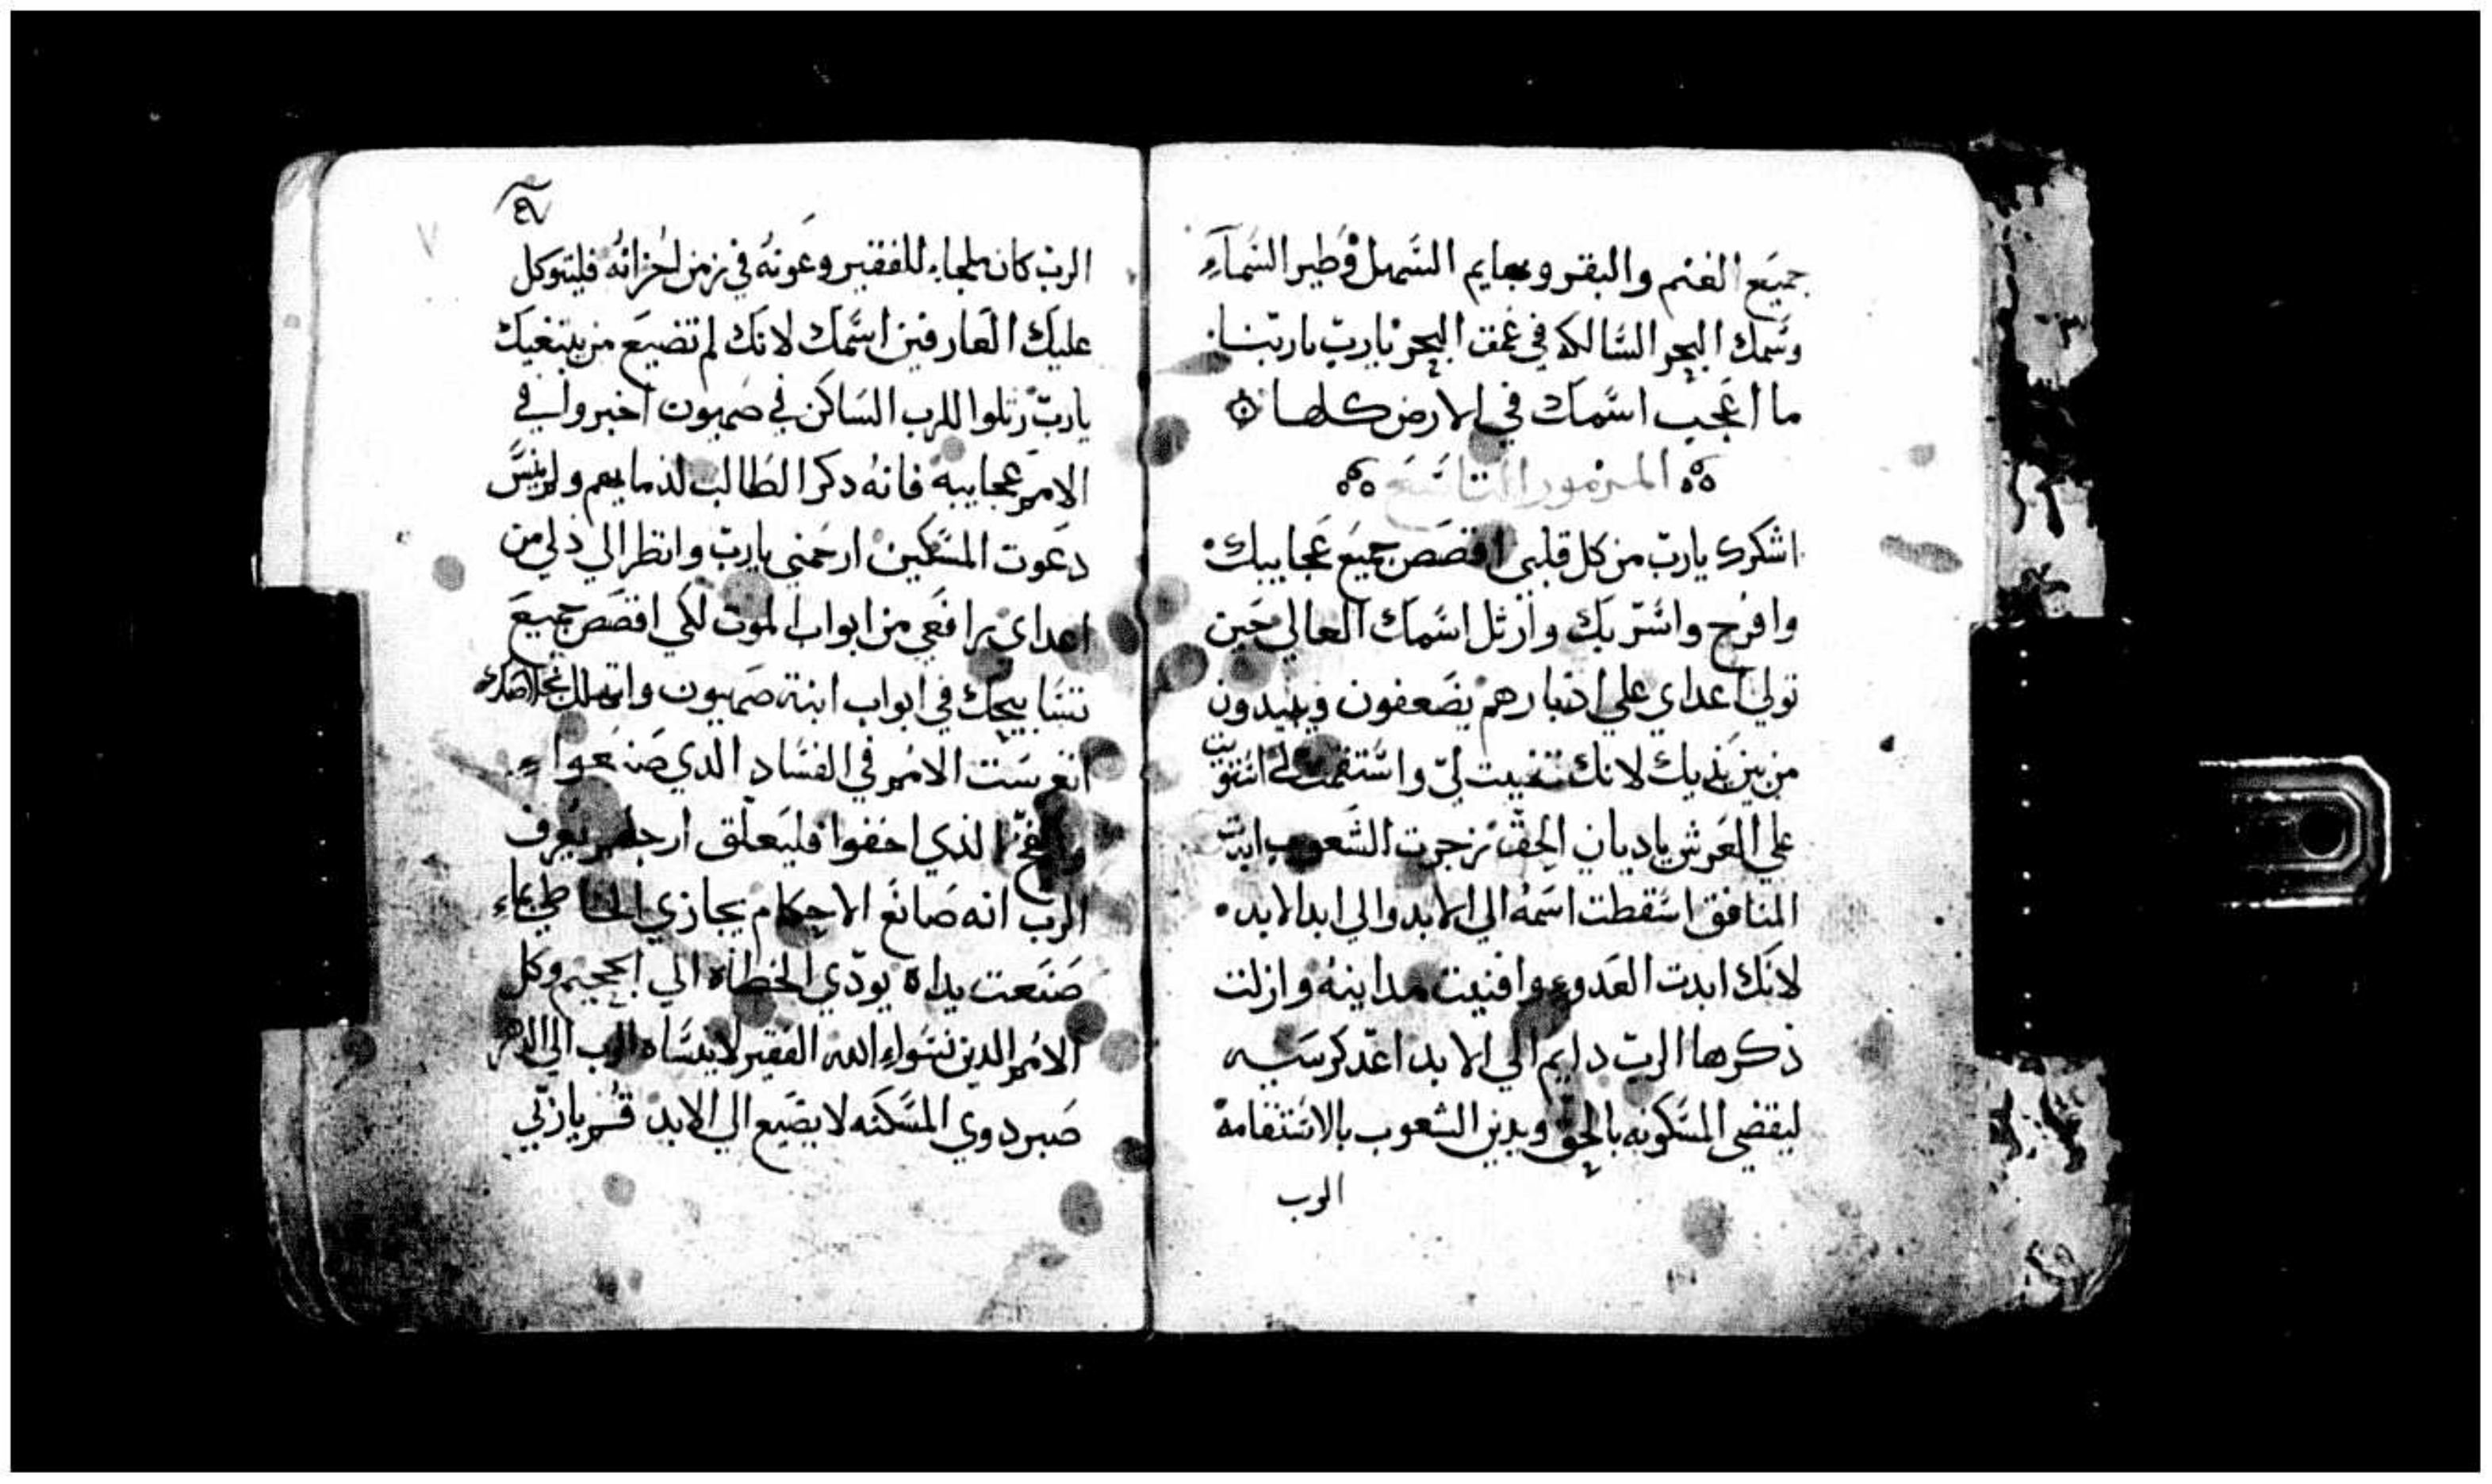 جميع الغنم والبقر وبهايم السهل وطير السماء
وسمك البحر السالكه في عمق البحر يارب ياربنا
ما اعجب اسمك في الارض كلها
المزمور التاسع
اشكرك يارب من كل قلبي اقصص جميع عجايبك
وافرح واسر بك وارتل اسمك العالي حين
تولي اعداي علي ادبارهم يضعفون ويبيدون
من بين يديك لانك قضيت لي واستقمت لي استويت
علي العرش ياديان الحق زجرت الشعوب ابدت
المنافق اسقطت اسمه الي الابد والي ابد الابد
لانك ابدت العدو وافنيت مداينه وازلت
ذكرها الرب دايم الي الابد اعد كرسيه
ليقضي المسكونه بالحق ويدين الشعوب بالاستقامه
الرب
الرب كان ملجاء للفقير وعونه في زمن احزانه فليتوكل
عليك العارفين اسمك لانك لم تضيع من يبتغيك
يارب رتلوا للرب الساكن في صهيون اخبروا في
الامم عجايبه فانه دكر الطالب لدمايهم ولم ينس
دعوت المسكين ارحمني يارب وانظر الي ذلي من
اعداي يرافعي من ابواب الموت لكي اقصص جميع
تسابيحك في ابواب ابنة صهيون واتهلل بخلاصك
انغرست الامم في الفساد الدي صنعوا
وبالفخ الذي اخفوا فليتعلق ارجلهم يعرف
الرب انه صانع الاحكام يجازي الخاطي بماء
صنعت يداه يودي الخطاه الي الجحيم وكل
الامم الدين نسواء الله الفقير لا ينساه الرب الي الدهر
صبر دوي المسكنه لا يضيع الي الابد قم يازبي